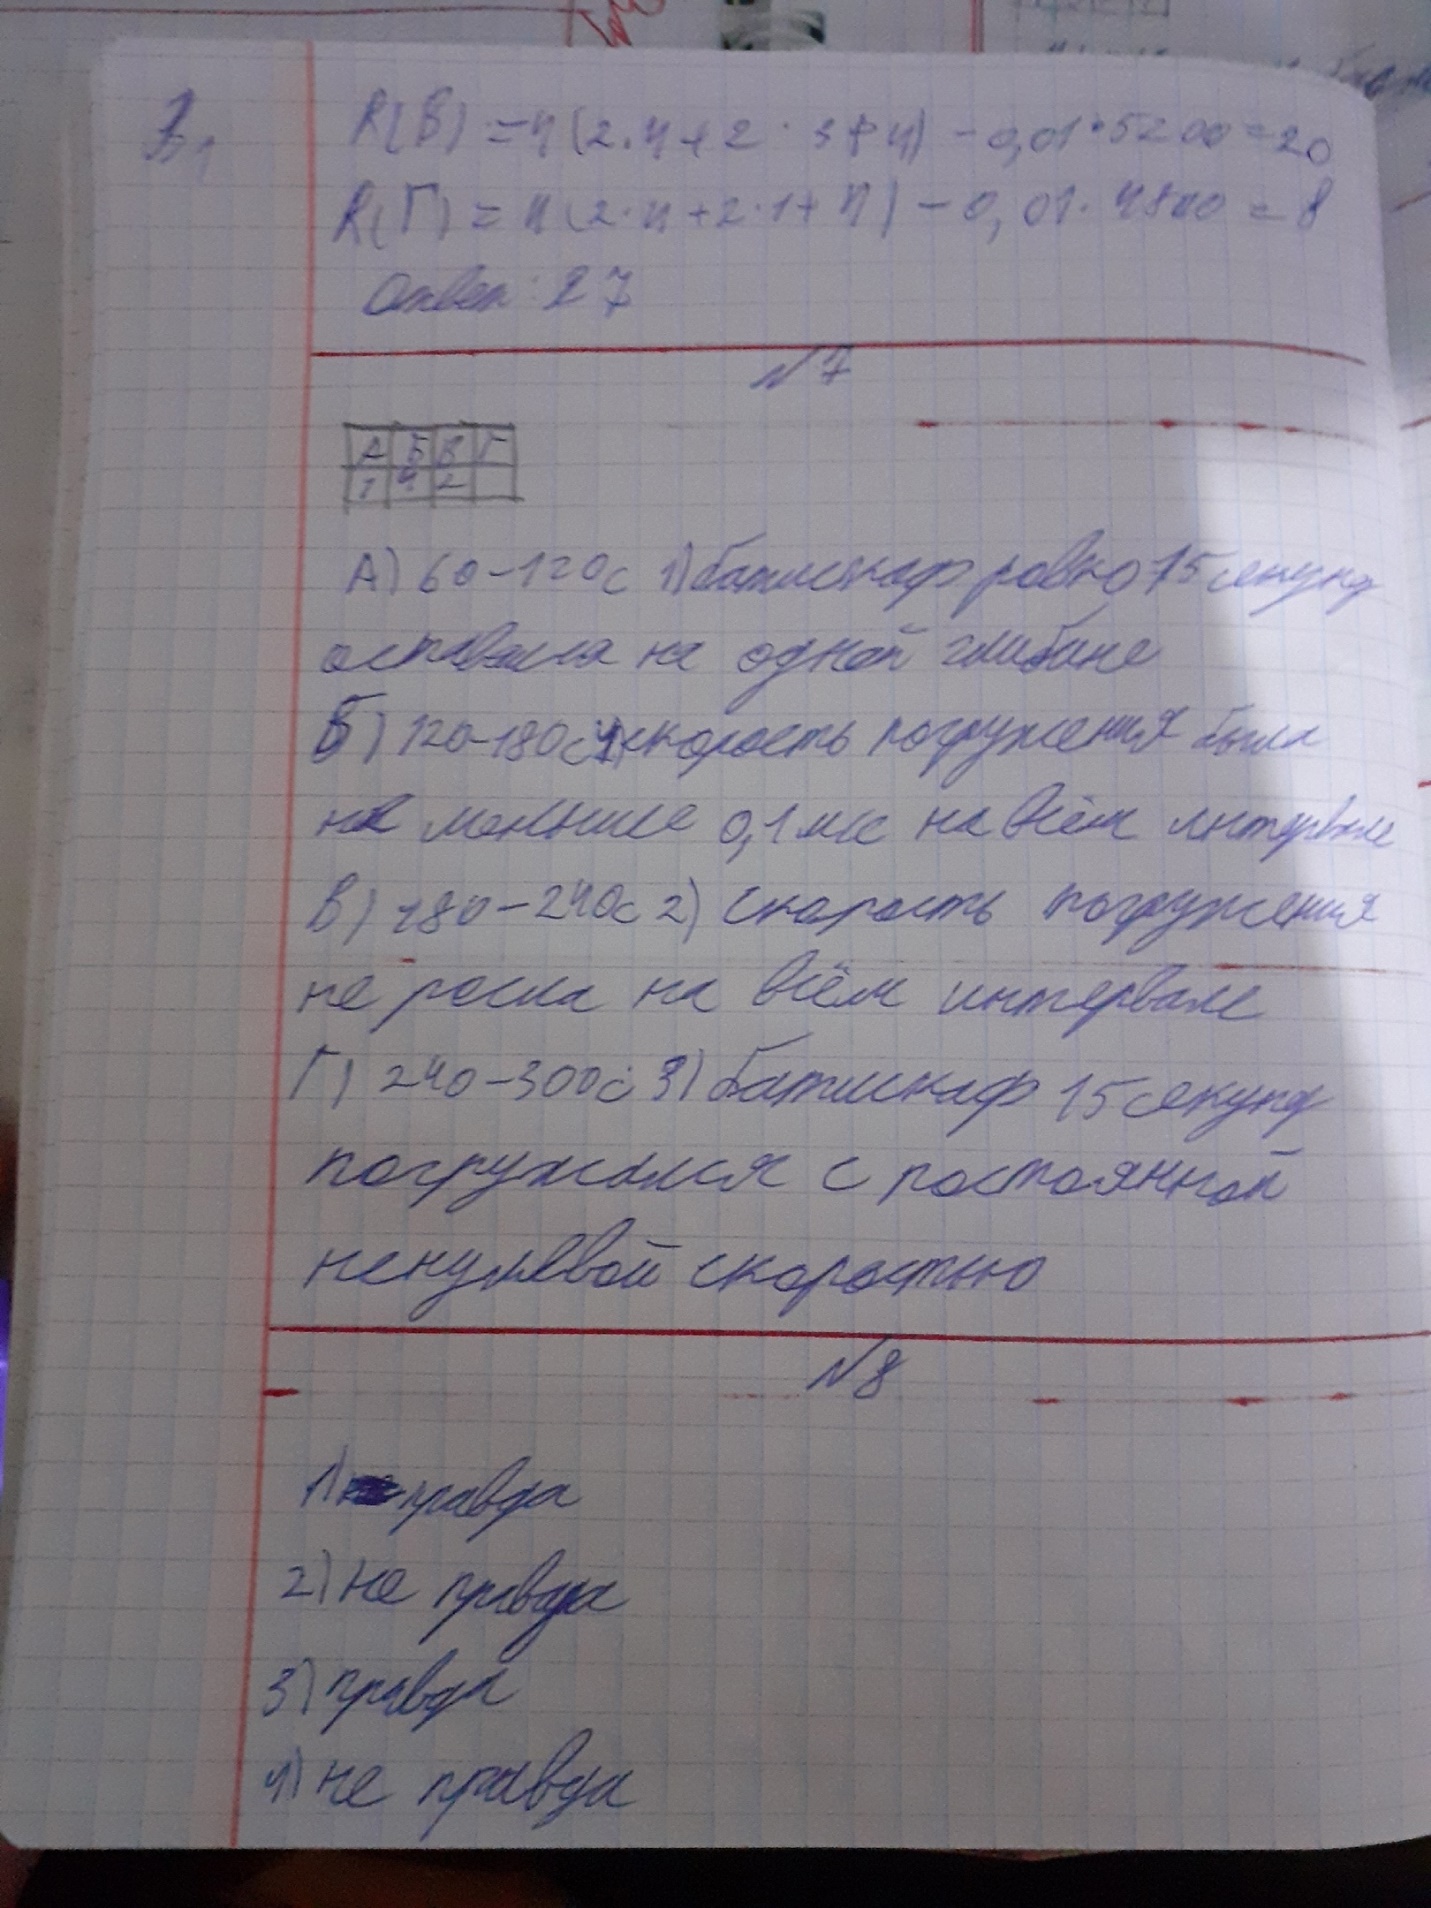 R(В) = 4(2·4+2·3+4) - 0,01·5200 = 20
R(Г) = 4(2·4+2·1+4) - 0,01·4800 = 8
Ответ: 27
№7
А Б В Г
1 4 2
А) 60-120с 1) батискаф ровно 15 секунд
оставался на одной глубине
Б) 120-180с 4) скорость погружения была
не меньше 0,1 мс на всём интервале
В) 180-240с 2) скорость погружения
не росла на всём интервале
Г) 240-300с 3) батискаф 15 секунд
погружался с постоянной
ненулевой скоростью
№8
1) правда
2) не правда
3) правда
4) не правда